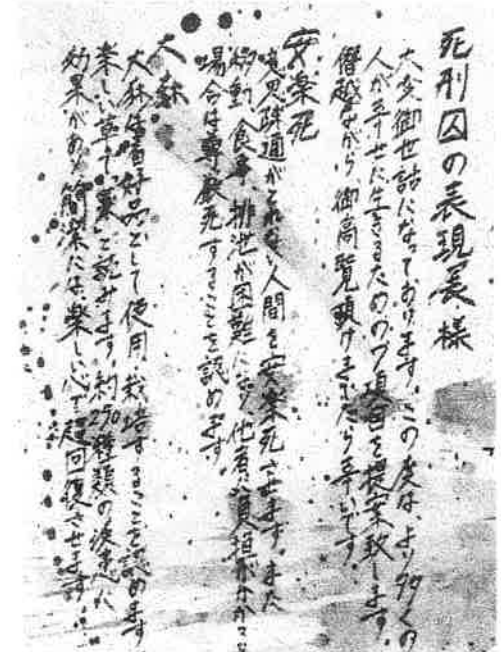 死刑囚の表現展様
大変御世話になっております。この度は、より多くの
人が幸せに生きるための7項目を提案致します。
僭越ながら、御高覧頂けましたら幸いです。
安楽死
意思疎通がとれない人間を安楽死させます。また
移動、食事、排泄が困難になり、他者に負担がかかる
場合は尊厳死することを認めます。
大麻
大麻は嗜好品として使用・栽培することを認めます
楽しい草で「薬」と読めます。約250種類の疾患に
効果があり、簡潔には、楽しい心で超回復させます。